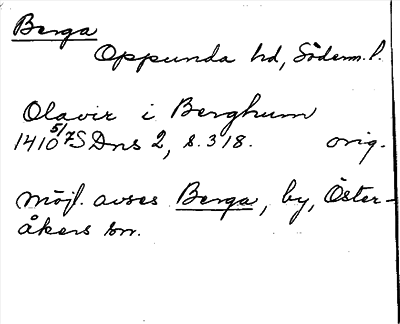 Berga
Oppunda hd, Söderm. l.
Olavir i Berghum
1410 5/7 SDns 2, s. 318. orig.
möjl. avses Berga, by, Öster-
åkers sn.